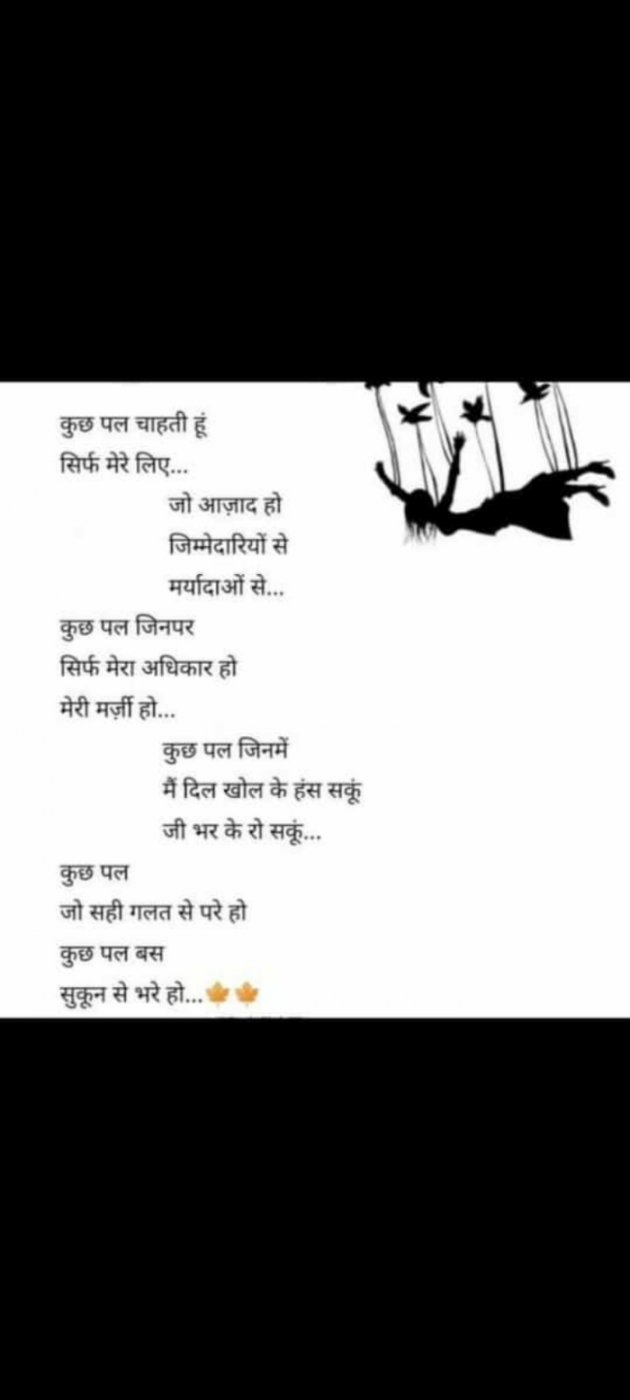 कुछ पल चाहती हूं
सिर्फ मेरे लिए...
जो आज़ाद हो
जिम्मेदारियों से
मर्यादाओं से...
कुछ पल जिनपर
सिर्फ मेरा अधिकार हो
मेरी मर्ज़ी हो...
कुछ पल जिनमें
मैं दिल खोल के हंस सकूं
जी भर के रो सकूं...
कुछ पल
जो सही गलत से परे हो
कुछ पल बस
सुकून से भरे हो...🍁🍁